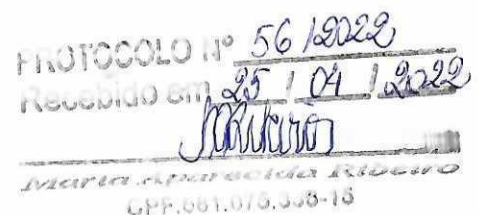 PROTOCOLO Nº 56/2022
Recebido em 25/04/2022
Maria Aparecida Ribeiro